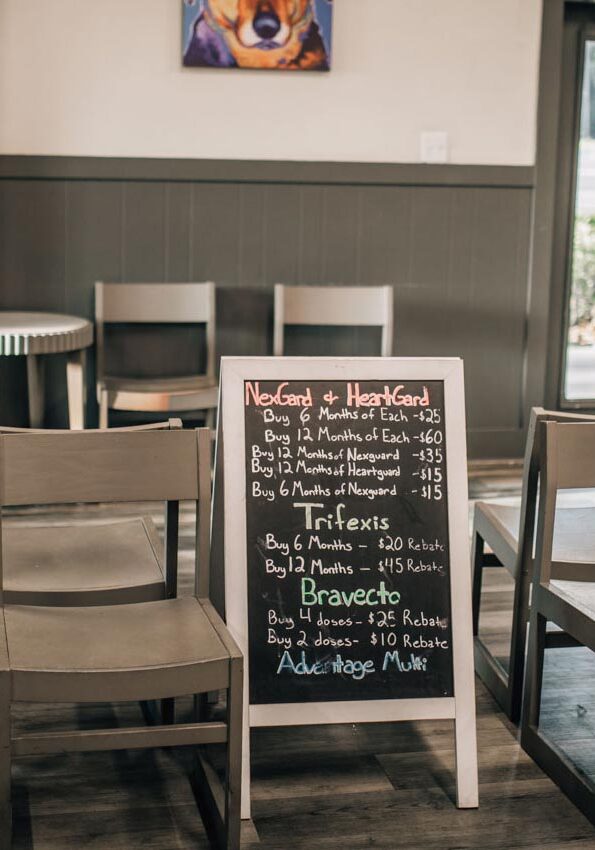 NexGard & HeartGard
Buy 6 Months of Each -$25
Buy 12 Months of Each -$60
Buy 12 Months of Nexguard -$35
Buy 12 Months of Heartguard -$15
Buy 6 Months of Nexguard -$15
Trifexis
Buy 6 Months - $20 Rebate
Buy 12 Months - $45 Rebate
Bravecto
Buy 4 doses- $25 Rebate
Buy 2 doses- $10 Rebate
Advantage Multi